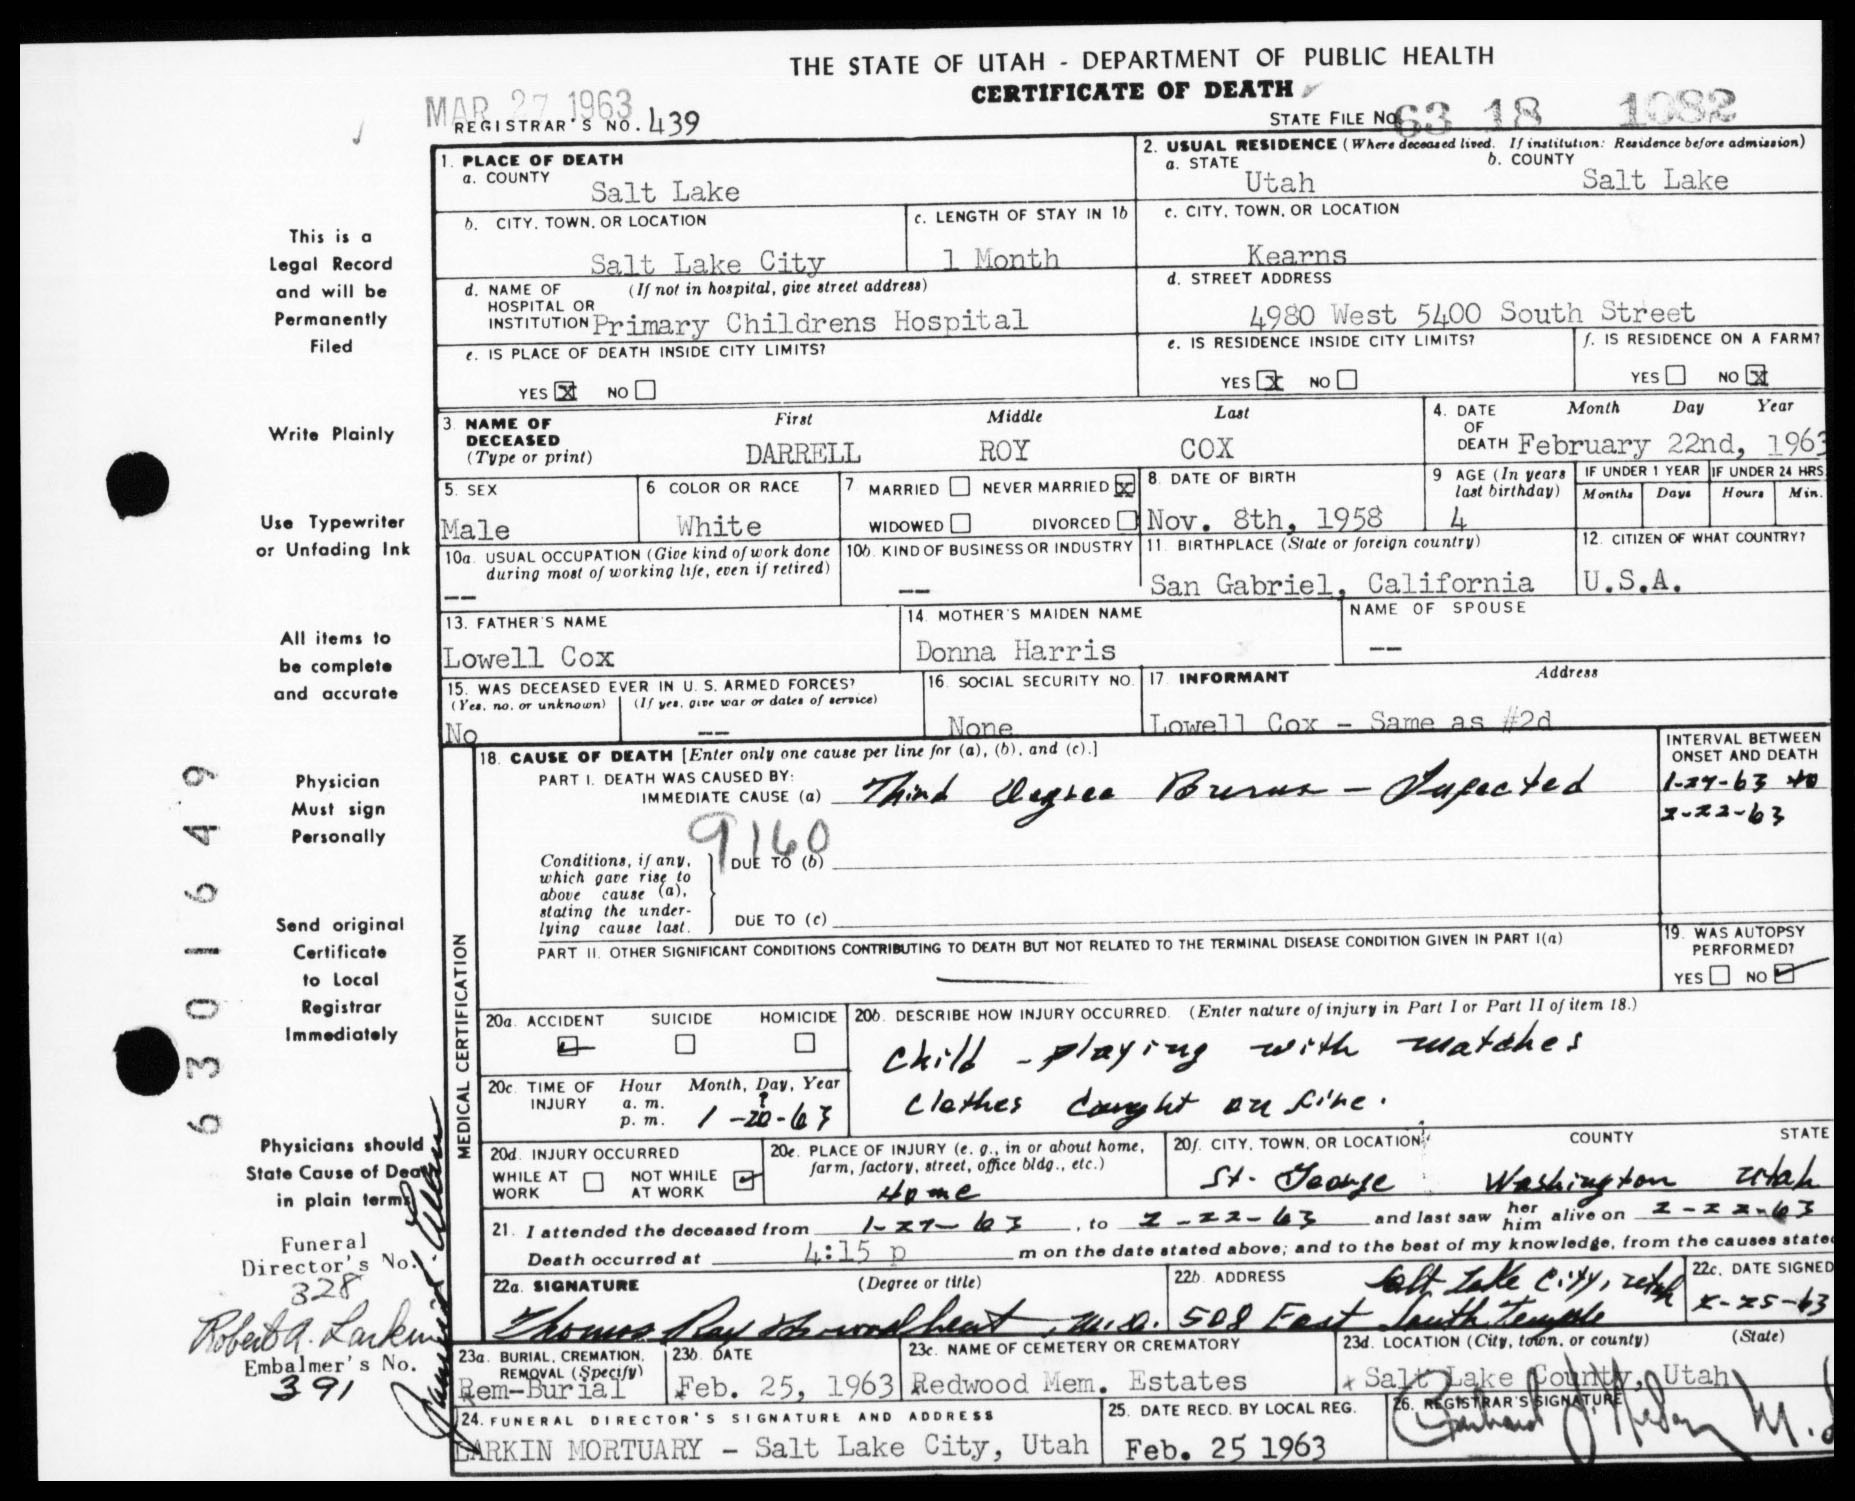 THE STATE OF UTAH - DEPARTMENT OF PUBLIC HEALTH
CERTIFICATE OF DEATH
MAR 27 1963
REGISTRAR'S NO. 439
STATE FILE NO. 63 18 1082
1. PLACE OF DEATH
a. COUNTY
Salt Lake
2. USUAL RESIDENCE (Where deceased lived. If institution: Residence before admission)
a. STATE
Utah
b. COUNTY
Salt Lake
b. CITY, TOWN, OR LOCATION
Salt Lake City
c. LENGTH OF STAY IN 1b
1 Month
c. CITY, TOWN, OR LOCATION
Kearns
d. NAME OF (If not in hospital, give street address)
HOSPITAL OR
INSTITUTION Primary Childrens Hospital
d. STREET ADDRESS
4980 West 5400 South Street
e. IS PLACE OF DEATH INSIDE CITY LIMITS?
YES X NO
e. IS RESIDENCE INSIDE CITY LIMITS?
YES X NO
f. IS RESIDENCE ON A FARM?
YES NO X
3. NAME OF DECEASED (Type or print)
First Middle Last
DARRELL ROY COX
4. DATE OF DEATH
Month Day Year
February 22nd, 1963
5. SEX
Male
6 COLOR OR RACE
White
7 MARRIED NEVER MARRIED X
WIDOWED DIVORCED
8. DATE OF BIRTH
Nov. 8th, 1958
9 AGE (In years last birthday)
4
IF UNDER 1 YEAR
Months Days
IF UNDER 24 HRS.
Hours Min.
10a. USUAL OCCUPATION (Give kind of work done
during most of working life, even if retired)
--
10b. KIND OF BUSINESS OR INDUSTRY
--
11. BIRTHPLACE (State or foreign country)
San Gabriel, California
12. CITIZEN OF WHAT COUNTRY?
U.S.A.
13. FATHER'S NAME
Lowell Cox
14. MOTHER'S MAIDEN NAME
Donna Harris
NAME OF SPOUSE
--
15. WAS DECEASED EVER IN U.S. ARMED FORCES?
(Yes, no, or unknown) (If yes, give war or dates of service)
No --
16. SOCIAL SECURITY NO.
None
17 INFORMANT Address
Lowell Cox - Same as #2d
18. CAUSE OF DEATH [Enter only one cause per line for (a), (b), and (c).]
PART I. DEATH WAS CAUSED BY:
IMMEDIATE CAUSE (a) Third Degree Burns - Infected
INTERVAL BETWEEN
ONSET AND DEATH
1-27-63 to
2-22-63
9160
Conditions, if any,
which gave rise to
above cause (a),
stating the under-
lying cause last.
DUE TO (b)
DUE TO (c)
PART II. OTHER SIGNIFICANT CONDITIONS CONTRIBUTING TO DEATH BUT NOT RELATED TO THE TERMINAL DISEASE CONDITION GIVEN IN PART I(a)
19. WAS AUTOPSY
PERFORMED?
YES NO
MEDICAL CERTIFICATION
20a. ACCIDENT SUICIDE HOMICIDE
20b. DESCRIBE HOW INJURY OCCURRED. (Enter nature of injury in Part I or Part II of item 18.)
Child - playing with matches
clothes caught on fire.
20c. TIME OF INJURY
Hour Month, Day, Year
a. m.
p. m.
?
1-20-63
20d. INJURY OCCURRED
WHILE AT WORK
NOT WHILE AT WORK
20e. PLACE OF INJURY (e. g., in or about home,
farm, factory, street, office bldg., etc.)
Home
20f. CITY, TOWN, OR LOCATION COUNTY STATE
St. George Washington Utah
21. I attended the deceased from 1-27-63, to 2-22-63 and last saw her him alive on 2-22-63
Death occurred at 4:15 p m on the date stated above; and to the best of my knowledge, from the causes stated
22a. SIGNATURE (Degree or title)
Thomas Ray Broadbent, M.D.
22b. ADDRESS
Salt Lake City, Utah
508 East South Temple
22c. DATE SIGNED
2-25-63
23a. BURIAL, CREMATION,
REMOVAL (Specify)
Rem-Burial
23b. DATE
Feb. 25, 1963
23c. NAME OF CEMETERY OR CREMATORY
Redwood Mem. Estates
23d. LOCATION (City, town, or county) (State)
Salt Lake County, Utah
24. FUNERAL DIRECTOR'S SIGNATURE AND ADDRESS
LARKIN MORTUARY - Salt Lake City, Utah
25. DATE RECD. BY LOCAL REG.
Feb. 25 1963
26. REGISTRAR'S SIGNATURE
This is a
Legal Record
and will be
Permanently
Filed
Write Plainly
Use Typewriter
or Unfading Ink
All items to
be complete
and accurate
Physician
Must sign
Personally
Send original
Certificate
to Local
Registrar
Immediately
Physicians should
State Cause of Death
in plain terms
Funeral
Director's No.
328
Robert A. Larkin
Embalmer's No.
391
6301649